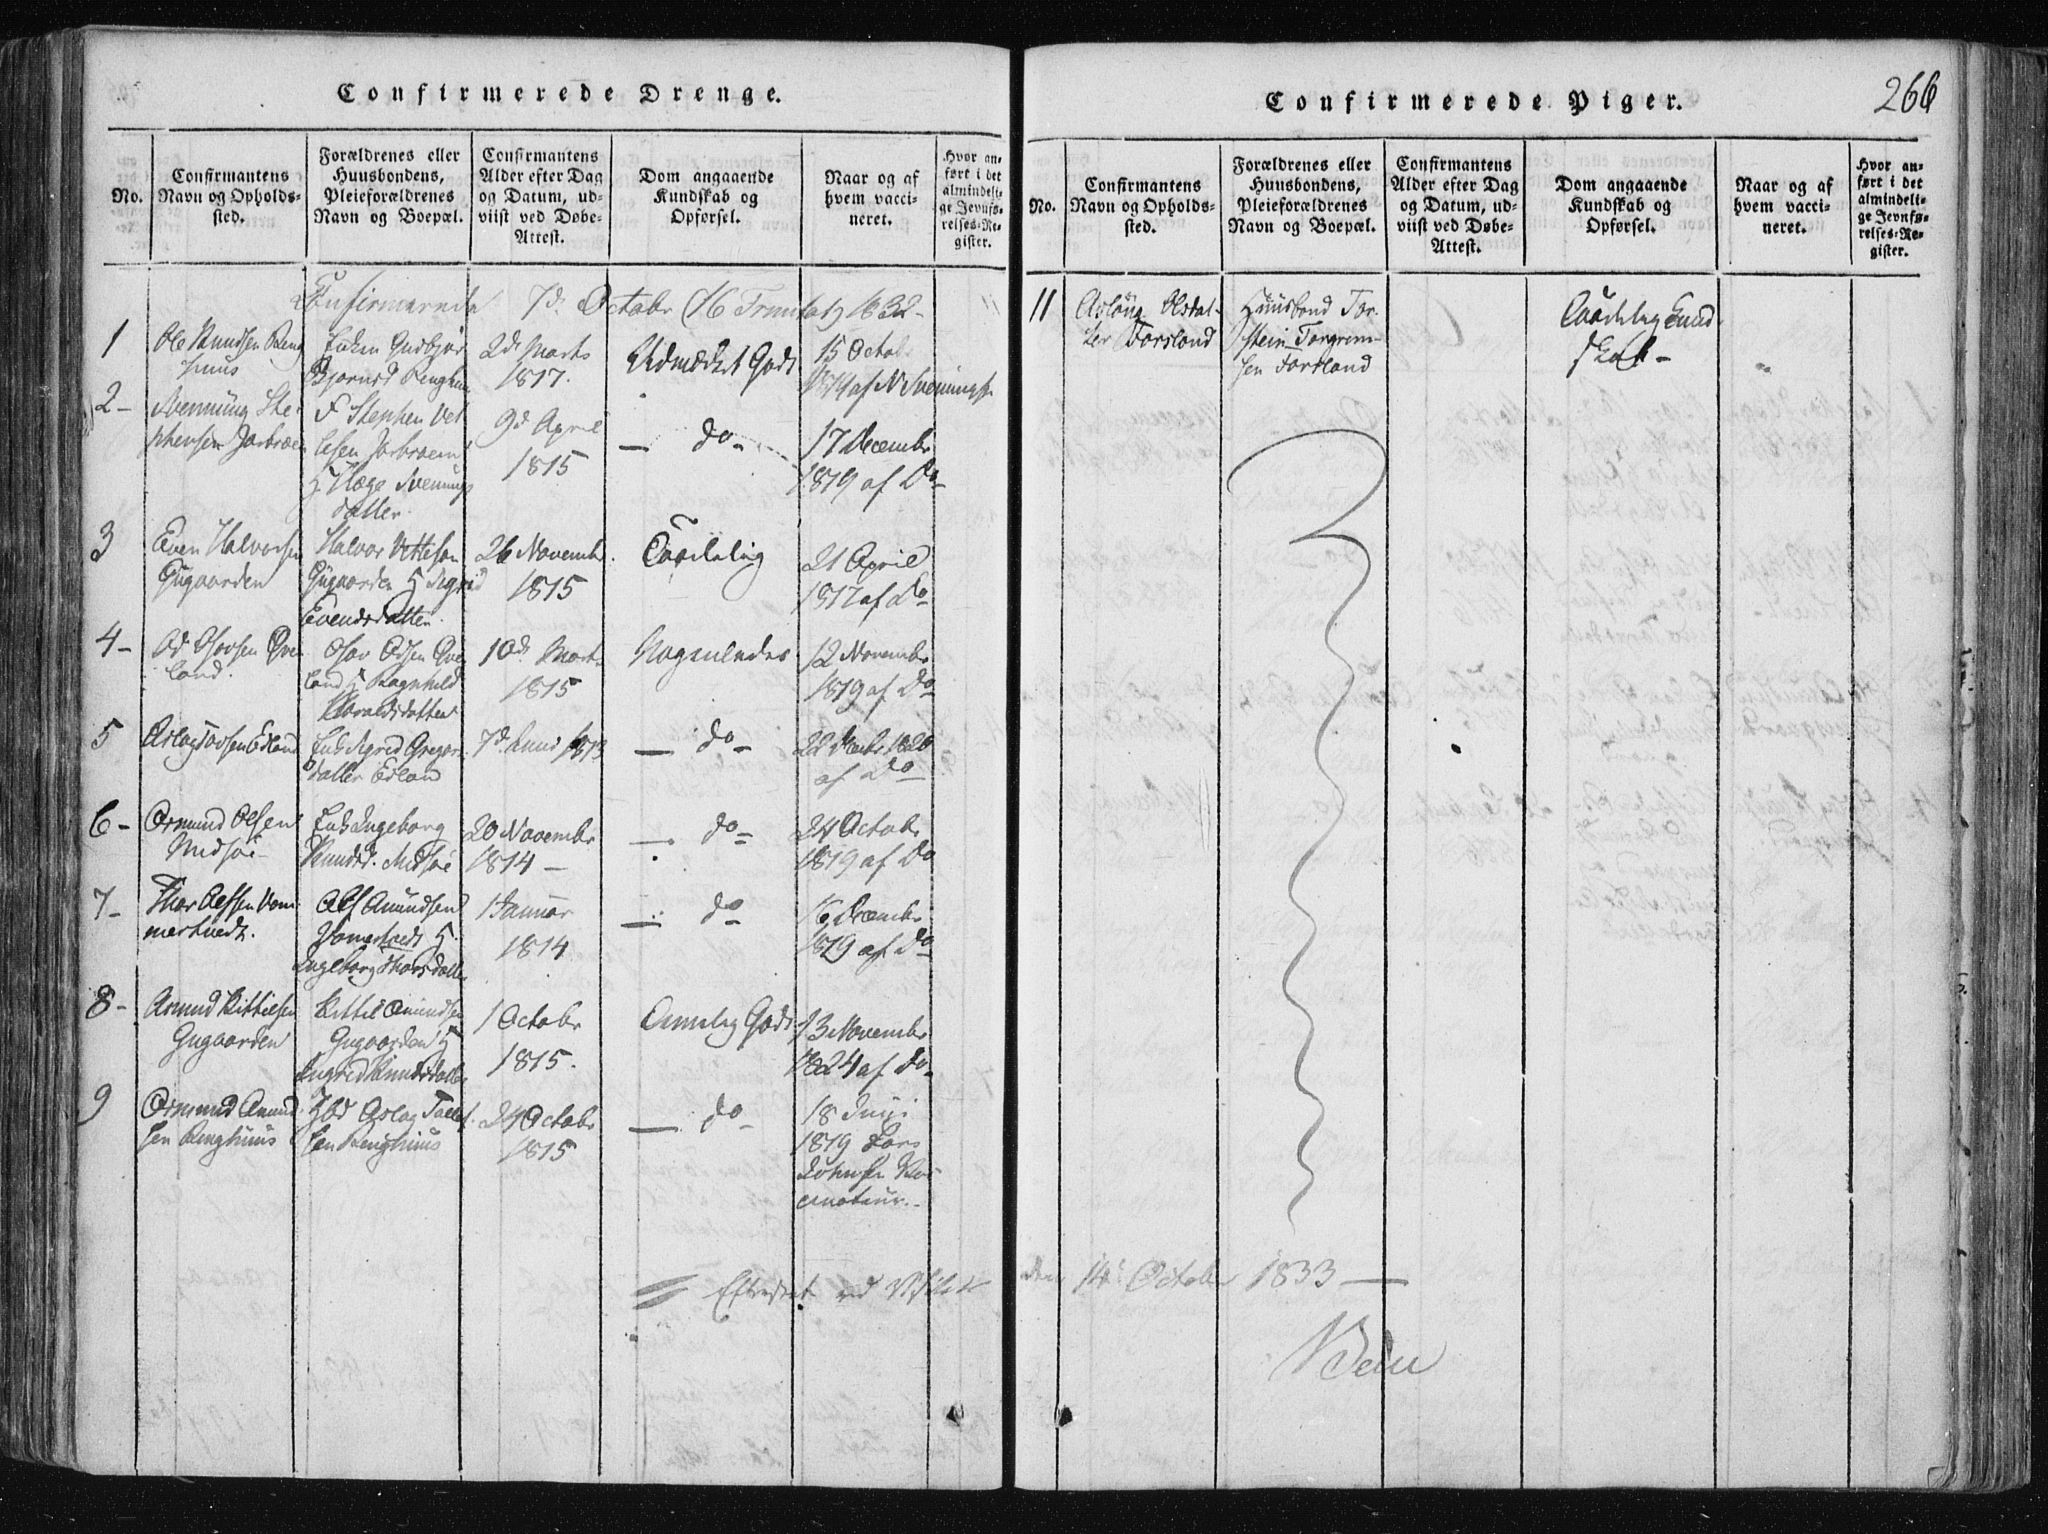 Confirmerede Drenge.
No.
Confirmantens
Navn og Opholds-
sted.
Forældrenes eller
Huusbondens,
Pleieforældrenes
Navn og Boepæl.
Confirmantens
Alder efter Dag
og Datum, ud-
viist ved Døbe-
Attest.
Dom angaaende
Kundskab og
Opførsel.
Naar og af
hvem vacci-
neret.
Hvor an-
ført i det
almindeli-
ge Jevnfø-
relses-Re-
gister.
Confirmerede 7d Octobr (16 Trinitat) 1832
1
Ole Knudsen Reng
huus
Enken Gudbjør
Bjørnsd Renghuus
2d Marts
1817.
Udmærket Godt
15 Octob
af N Svenningsen
2 -
Svennung Ste-
phensen Jarbroen
F Stephen Vet
lesen Jarbroen
H Hæge Svennungs
datter.
9d April
1815
— do -
17 Decembr
1819 af Do
3
Even Halvorsen
Gugaarden
Halvor Vetlesen
Gugaarden H Sigrid
Evendsdatter
26 Novembr
1815
Taadelig
21 April
1817 af Do
4 -
Od Olovsen Qve
land.
Olov Odsen Qve
land H Ragnhild
Haraldsdatter
10d Marts
1815
Nogenledes
12 Novembr
1819 af Do
5
Edland
Enk Sigrid Gregor
datter Edland
7d Juni 1813
— do -
22 Decbr 1820
af Do
6 -
Ormund Olsen
Midsöe
Enk Ingeborg
Knudsd. Midsöe
20 Novembr
1814 —
— do -
24 Octobr
1819 af Do
7 -
Thor Olfsen Vom
mertvedt.
Olf Amundsen
Vomertvedt H.
Ingeborg Thorsdatter
1 Januar
1814
— do
16 Decembr
1819 af Do
8 -
Amund Kittilsen
Gugaarden
Kittil Amundsen
Gugaarden H
Ingrid Knudsdatter
1 Octobr
1815.
Temelig Godt
13 Novembr
1824 af Do
9
Ormund Amund
sen Renghuus
Hbd Aslag Tallef
sen Renghuus
24 Octobr
1815
— do -
18 Juni
1819 Lars
Johnsen Vac
cinateur.
Efterseet ved Visitats
Confirmerede Piger.
266
No.
Confirmantens
Navn og Opholds-
sted.
Forældrenes eller
Huusbondens,
Pleieforældrenes
Navn og Boepæl.
Confirmantens
Alder efter Dag
og Datum, ud-
viist ved Døbe-
Attest.
Dom angaaende
Kundskab og
Opførsel.
Naar og af
hvem vacci-
neret.
Hvor an-
ført i det
almindeli-
ge Jevnfø-
relses-Re-
gister.
11
Aslaug Olsdat-
ter Forsland
Huusbond Tor-
stein Torgrim-
sen Forsland
Taadelig Kund
skab -
den 14d October 1833 —